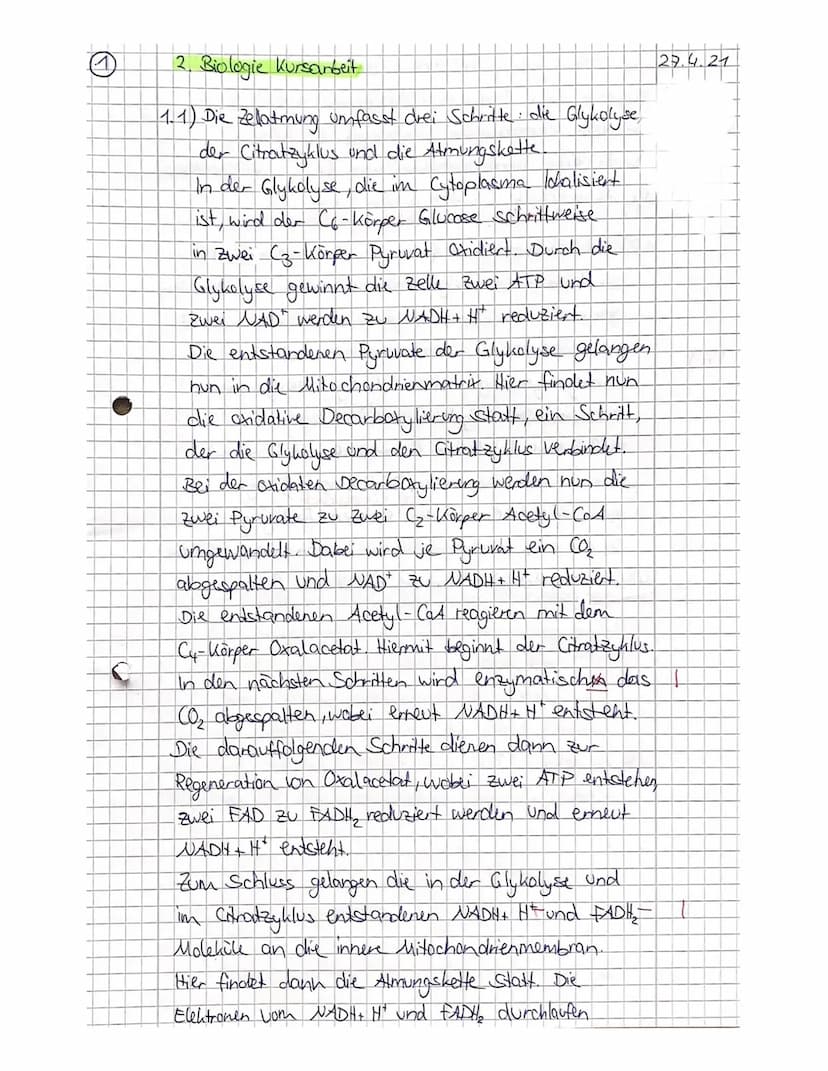 1 2. Biologie Kursarbeit 27.4.21
1.1) Die Zellatmung umfasst drei Schritte: die Glykolyse,
der Citratzyklus und die Atmungskette.
In der Glykolyse, die im Cytoplasma lokalisiert
ist, wird der C₆-Körper Glucose schrittweise
in zwei C₃-Körper Pyruvat oxidiert. Durch die
Glykolyse gewinnt die Zelle zwei ATP und
zwei NAD⁺ werden zu NADH + H⁺ reduziert.
Die entstandenen Pyruvate der Glykolyse gelangen
nun in die Mitochondrienmatrix. Hier findet nun
die oxidative Decarboxylierung statt, ein Schritt,
der die Glykolyse und den Citratzyklus verbindet.
Bei der oxidaten Decarboxylierung werden nun die
zwei Pyruvate zu zwei C₂-Körper Acetyl-CoA
umgewandelt. Dabei wird je Pyruvat ein CO₂
abgespalten und NAD⁺ zu NADH + H⁺ reduziert.
Die entstandenen Acetyl-CoA reagieren mit dem
C₄-Körper Oxalacetat. Hiermit beginnt der Citratzyklus.
In den nächsten Schritten wird enzymatisch das
CO₂ abgespalten, wobei erneut NADH + H⁺ entsteht.
Die darauffolgenden Schritte dienen dann zur
Regeneration von Oxalacetat, wobei zwei ATP entstehen,
zwei FAD zu FADH₂ reduziert werden und erneut
NADH + H⁺ entsteht.
Zum Schluss gelangen die in der Glykolyse und
im Citratzyklus entstandenen NADH + H⁺ und FADH₂-
Moleküle an die innere Mitochondrienmembran.
Hier findet dann die Atmungskette statt. Die
Elektronen vom NADH + H⁺ und FADH₂ durchlaufen